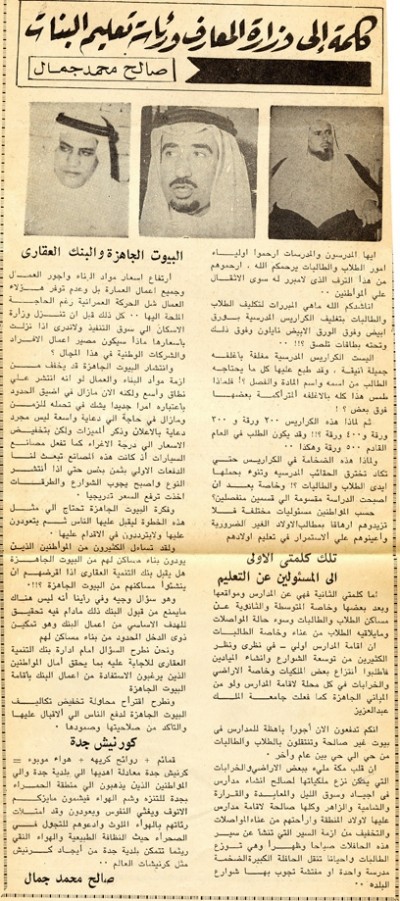 كلمة إلى وزارة المعارف ورئاسة تعليم البنات
صالح محمد جمال
ايها المدرسون والمدرسات ارحموا اولياء
امور الطلاب والطالبات يرحمكم الله ، ارحموهم
من هذا الترف الذي لامبرر له سوى الاثقال
على المواطنين ٠٠
اناشدكم الله ماهي المبررات لتكليف الطلاب
والطالبات بتغليف الكراريس المدرسية بورق
ابيض وفوق الورق الابيض نايلون وفوق ذلك
وتحته بطاقات تلصق ؟!! ٠٠
اليست الكراريس المدرسية مغلفة باغلفة
جميلة انيقة ، وقد طبع عليها كل ما يحتاجه
الطالب من اسمه واسم المادة والفصل ؟! فلماذا
طمس هذا كله بالاغلفة المتراكمة بعضها
فوق بعض ؟!
ثم لماذا هذه الكراريس ٢٠٠ ورقة و ٣٠٠
ورقة و٤٠٠ ورقة ؟!! وقد يكون الطلب في العام
القادم ٥٠٠ ورقة وهكذا ٠٠
ولماذا هذه الضخامة في الكراريس حتى
تكاد تخترق الحقائب المدرسية وتنوء بحملها
ايدى الطلاب والطالبات ؟! وخاصة بعد ان
اصبحت الدراسة مقسومة الى قسمين منفصلين؟
حسب المواطنين مسئوليات مختلفة فلا
تزيدوهم ارهاقا بمطالب الاولاد الغير الضرورية
وأعينوهم على الاستمرار في تعليم اولادهم
تلك كلمتي الاولى
الى المسئولين عن التعليم
اما كلمتي الثانية فهي عن المدارس ومواقعها
وبعد بعضها وخاصة المتوسطة والثانوية عن
مساكن الطلاب والطالبات وسوء حالة المواصلات
ومايلاقيه الطلاب من عناء وخاصة الطالبات
ان اقامة المدارس اولى - في نظرى ونظر
الكثيرين من توسعة الشوارع وانشاء الميادين
فاطلبوا انتزاع بعض الملكيات وخاصة الاراضي
والخرابات في كل محلة لاقامة مدارس ولو من
المباني الجاهزة كما فعلت جامعة الملك
عبدالعزيز
انكم تدفعون الان أجورا باهظة للمدارس في
بيوت غير صالحة وتنتقلون بالطلاب والطالبات
من حي الى حي بين عام وآخر ٠
ان قلب مكة مليء ببعض الاراضي والخرابات
التي يمكن نزع ملكياتها لصالح انشاء مدارس
في اجياد وسوق الليل والمعابدة والقرارة
والشامية والزاهر وكلها صالحة لاقامة مدارس
عليها لاولاد المنطقة وارأحتهم من عناء المواصلات
والتخفيف من ازمة السير التي تنشأ عن سير
هذه الحافلات صباحا وظهرا وهي توزع
الطالبات واحيانا تنقل الحافلة الكبيرة الضخمة
مدرسة واحدة او مفتشة تجوب بها شوارع
البلده ٠٠
البيوت الجاهزة والبنك العقارى
أرتفاع اسعار مواد البناء واجور العمال
وجميع اعمال العمارة بل وعدم توفر هؤلاء
العمال شل الحركة العمرانية رغم الحاجة
الملحة اليها ٠٠ كل ذلك قبل ان تنزل وزارة
الاسكان الى سوق التنفيذ ولاندرى اذا نزلت
باسعارها ماذا سيكون مصير اعمال الافراد
والشركات الوطنية في هذا المجال ؟
وانتشار البيوت الجاهزة قد يخفف من
ازمة مواد البناء والعمال لو انه انتشر على
نطاق واسع ولكنه الان مازال في اضيق الحدود
باعتباره امرا جديدا يشك في تحمله للزمن
ومازال في حاجة الى دعاية واسعة ليس مجرد
دعاية بالاعلان وذكر المميزات ولكن بتخفيض
الاسعار الى درجة الاغراء كما تفعل مصانع
السيارات اذ كانت هذه المصانع تبعث لنا
الدفعات الاولى بثمن بخس حتى اذا أنتشر
النوع واصبح يجوب الشوارع والطرقات
اخذت ترفع السعر تدريجيا ٠
وفكرة البيوت الجاهزة تحتاج الى مثل
هذه الخطوة ليقبل عليها الناس ثم يتعودون
عليها ولايترددون في الاقدام عليها ٠
ولقد تساءل الكثيرون من المواطنين الذين
يودون بناء مساكن لهم من البيوت الجاهزة
هل يقبل بنك التنمية العقارى اذا اقرضهم ان
ينشئوا مساكنهم من البيوت الجاهزة ؟!!٠٠
وهو سؤال وجيه وفي رأينا أنه ليس هناك
مايمنع من قبول البنك ذلك مادام فيه تحقيق
للهدف الاساسي من اعمال البنك وهو تمكين
ذوى الدخل المحدود من بناء مساكن لهم
ونحن نطرح السؤال امام ادارة بنك التنمية
العقارى للاجابة عليه بما يحقق آمال المواطنين
الذين يرغبون الاستفادة من اعمال البنك باقامة
البيوت الجاهزة
ونطرح اقتراح محاولة تخفيض تكاليف
البيوت الجاهزة لدفع الناس الى الاقبال عليها
والتاكد من صلاحيتها وصمودها ٠
كورنيش جدة
قمائم + روائح كريهة + هواء موبوء =
كرنيش جدة معادلة اهديها الى بلدية جدة والى
المواطنين الذين يذهبون الى منطقة الحمراء
بجدة للتنزه وشم الهواء فيشمون مايزكم
الانوف ويغثي النفوس ويعودون وقد امتلأت
رئاتهم بالهواء الملوث وادعوهم للتجول في
الصحراء حيث النظافة الطبيعية والهواء النقي
ريثما تتمكن بلدية جدة من أيجاد كرنيش
مثل كرنيشات العالم ٠٠
صالح محمد جمال